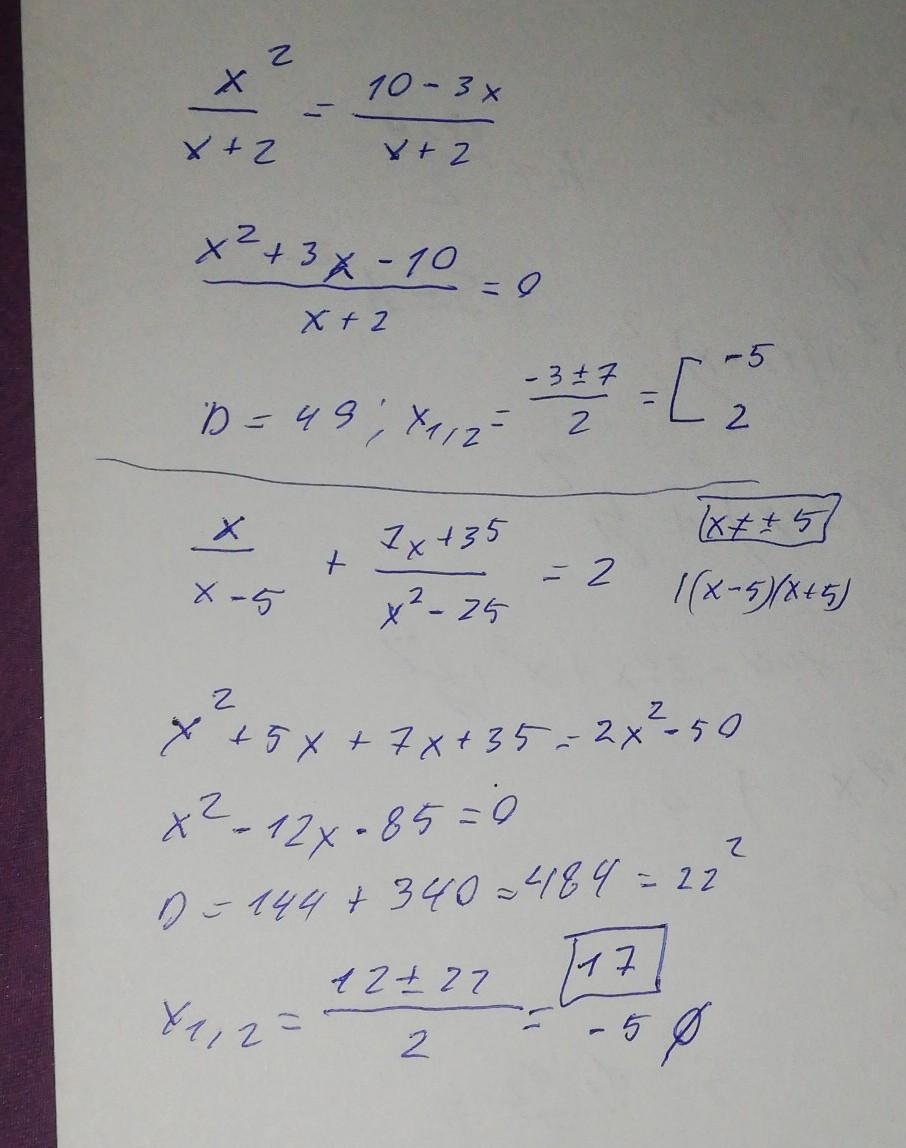 x²/(x+2) = (10-3x)/(x+2)
(x²+3x-10)/(x+2) = 0
D = 49; x₁,₂ = (-3±7)/2 = [ -5 2
x/(x-5) + (7x+35)/(x²-25) = 2 x≠±5
|(x-5)(x+5)
x²+5x+7x+35=2x²-50
x²-12x-85=0
D=144+340=484=22²
x₁,₂ = (12±22)/2 = 17 -5 ∅